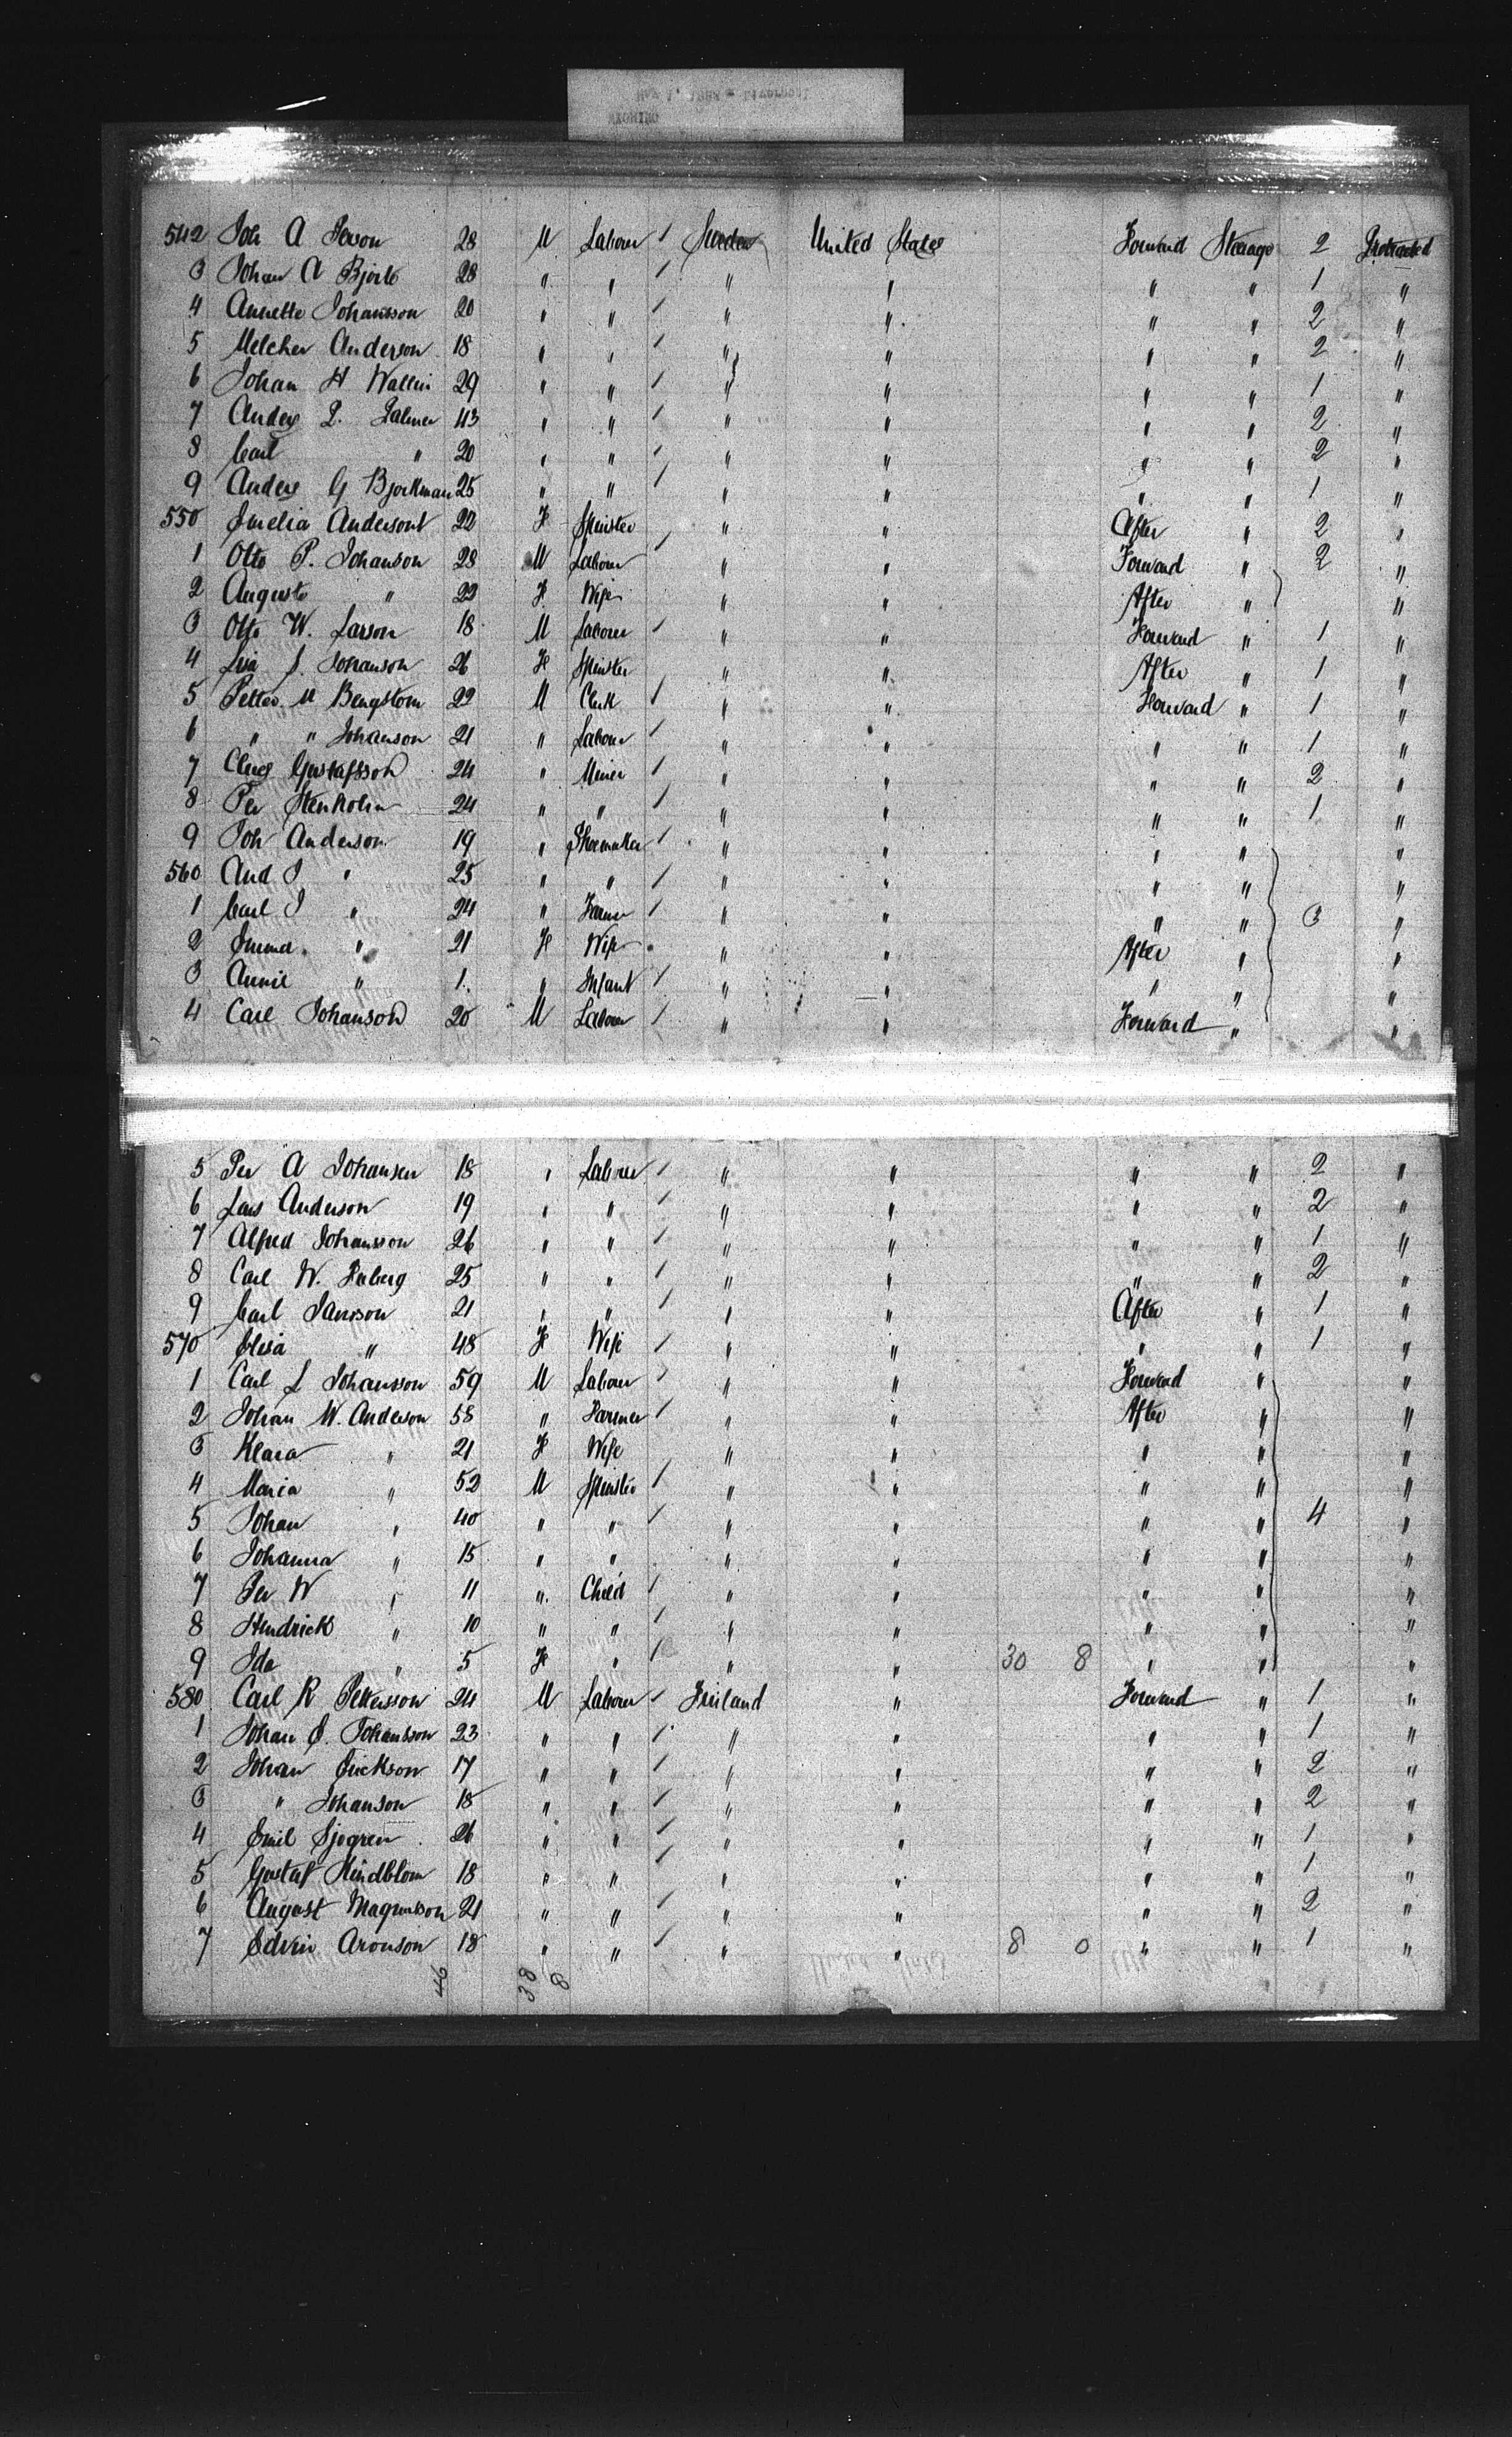 542 Joh A Person 28 M Labourer / Sweden United States Forward Steerage 2 Protracted
3 Johan A Bjork 28 " " / " " " " 1 "
4 Annette Johansson 20 " " / " " " " 2 "
5 Melcher Anderson 18 " " / " " " " 2 "
6 Johan H Wallin 29 " " / " " " " 1 "
7 Anders P. Palmer 43 " " / " " " " 2 "
8 Carl " 20 " " / " " " " 2 "
9 Anders G Bjorkman 25 " " / " " " " 1 "
550 Emelia Anderson 22 F Spinster " " After " 2 "
1 Otto P. Johanson 28 M Labourer / " " Forward " 2 "
2 Augusta " 22 F Wife " " After " "
3 Otto W. Larson 18 M Labourer / " " Forward " 1 "
4 Lisa J. Johanson 26 F Spinster " " After " 1 "
5 Petter M Bengstom 22 M Clerk / " " Forward " 1 "
6 " " Johanson 21 " Labour / " " " " 1 "
7 Gustafsson 24 " Miner / " " " " 2 "
8 Per Stenholm 24 " " / " " " " 1 "
9 Joh Anderson 19 " Shoemaker / " " " " "
560 And J " 25 " " / " " " " "
1 Carl J " 24 " Farmer / " " " " 3 "
2 Emma " 21 F Wife " " After " "
3 Annie " 1 " Infant / " " " " "
4 Carl Johanson 20 M Labour / " " Forward " "
5 Per A Johansen 18 " Labourer / " " " " 2 "
6 Lars Anderson 19 " " / " " " " 2 "
7 Alfred Johansson 26 " " / " " " " 1 "
8 Carl W. 25 " " / " " " " 2 "
9 Carl Jansson 21 " " / " " After " 1 "
570 Elisa " 48 F Wife / " " " " 1 "
1 Carl J Johansson 59 M Labour / " " Forward " "
2 Johan W. Anderson 58 " Farmer / " " After " "
3 Klara " 21 F Wife " " " " "
4 Maria " 52 M Spinster / " " " " "
5 Johan " 40 " " / " " " " 4 "
6 Johanna " 15 " " " " " " "
7 Per W " 11 " Child / " " " " "
8 Hendrick " 10 " " / " " " " "
9 Ida " 5 F " / " " 30 8 " " "
580 Carl R Pettersson 24 M Labour / Finland " Forward " 1 "
1 Johan E. Johansson 23 " " / " " " " 1 "
2 Johan Erickson 17 " " / " " " " 2 "
3 " Johanson 18 " " / " " " " 2 "
4 Emil Sjogren 26 " " / " " " " 1 "
5 Gustaf Hindblom 18 " " / " " " " 1 "
6 August Magnusson 21 " " / " " " " 2 "
7 Edvin Aronson 18 " " / " " 8 0 " " 1 "
46 38 8